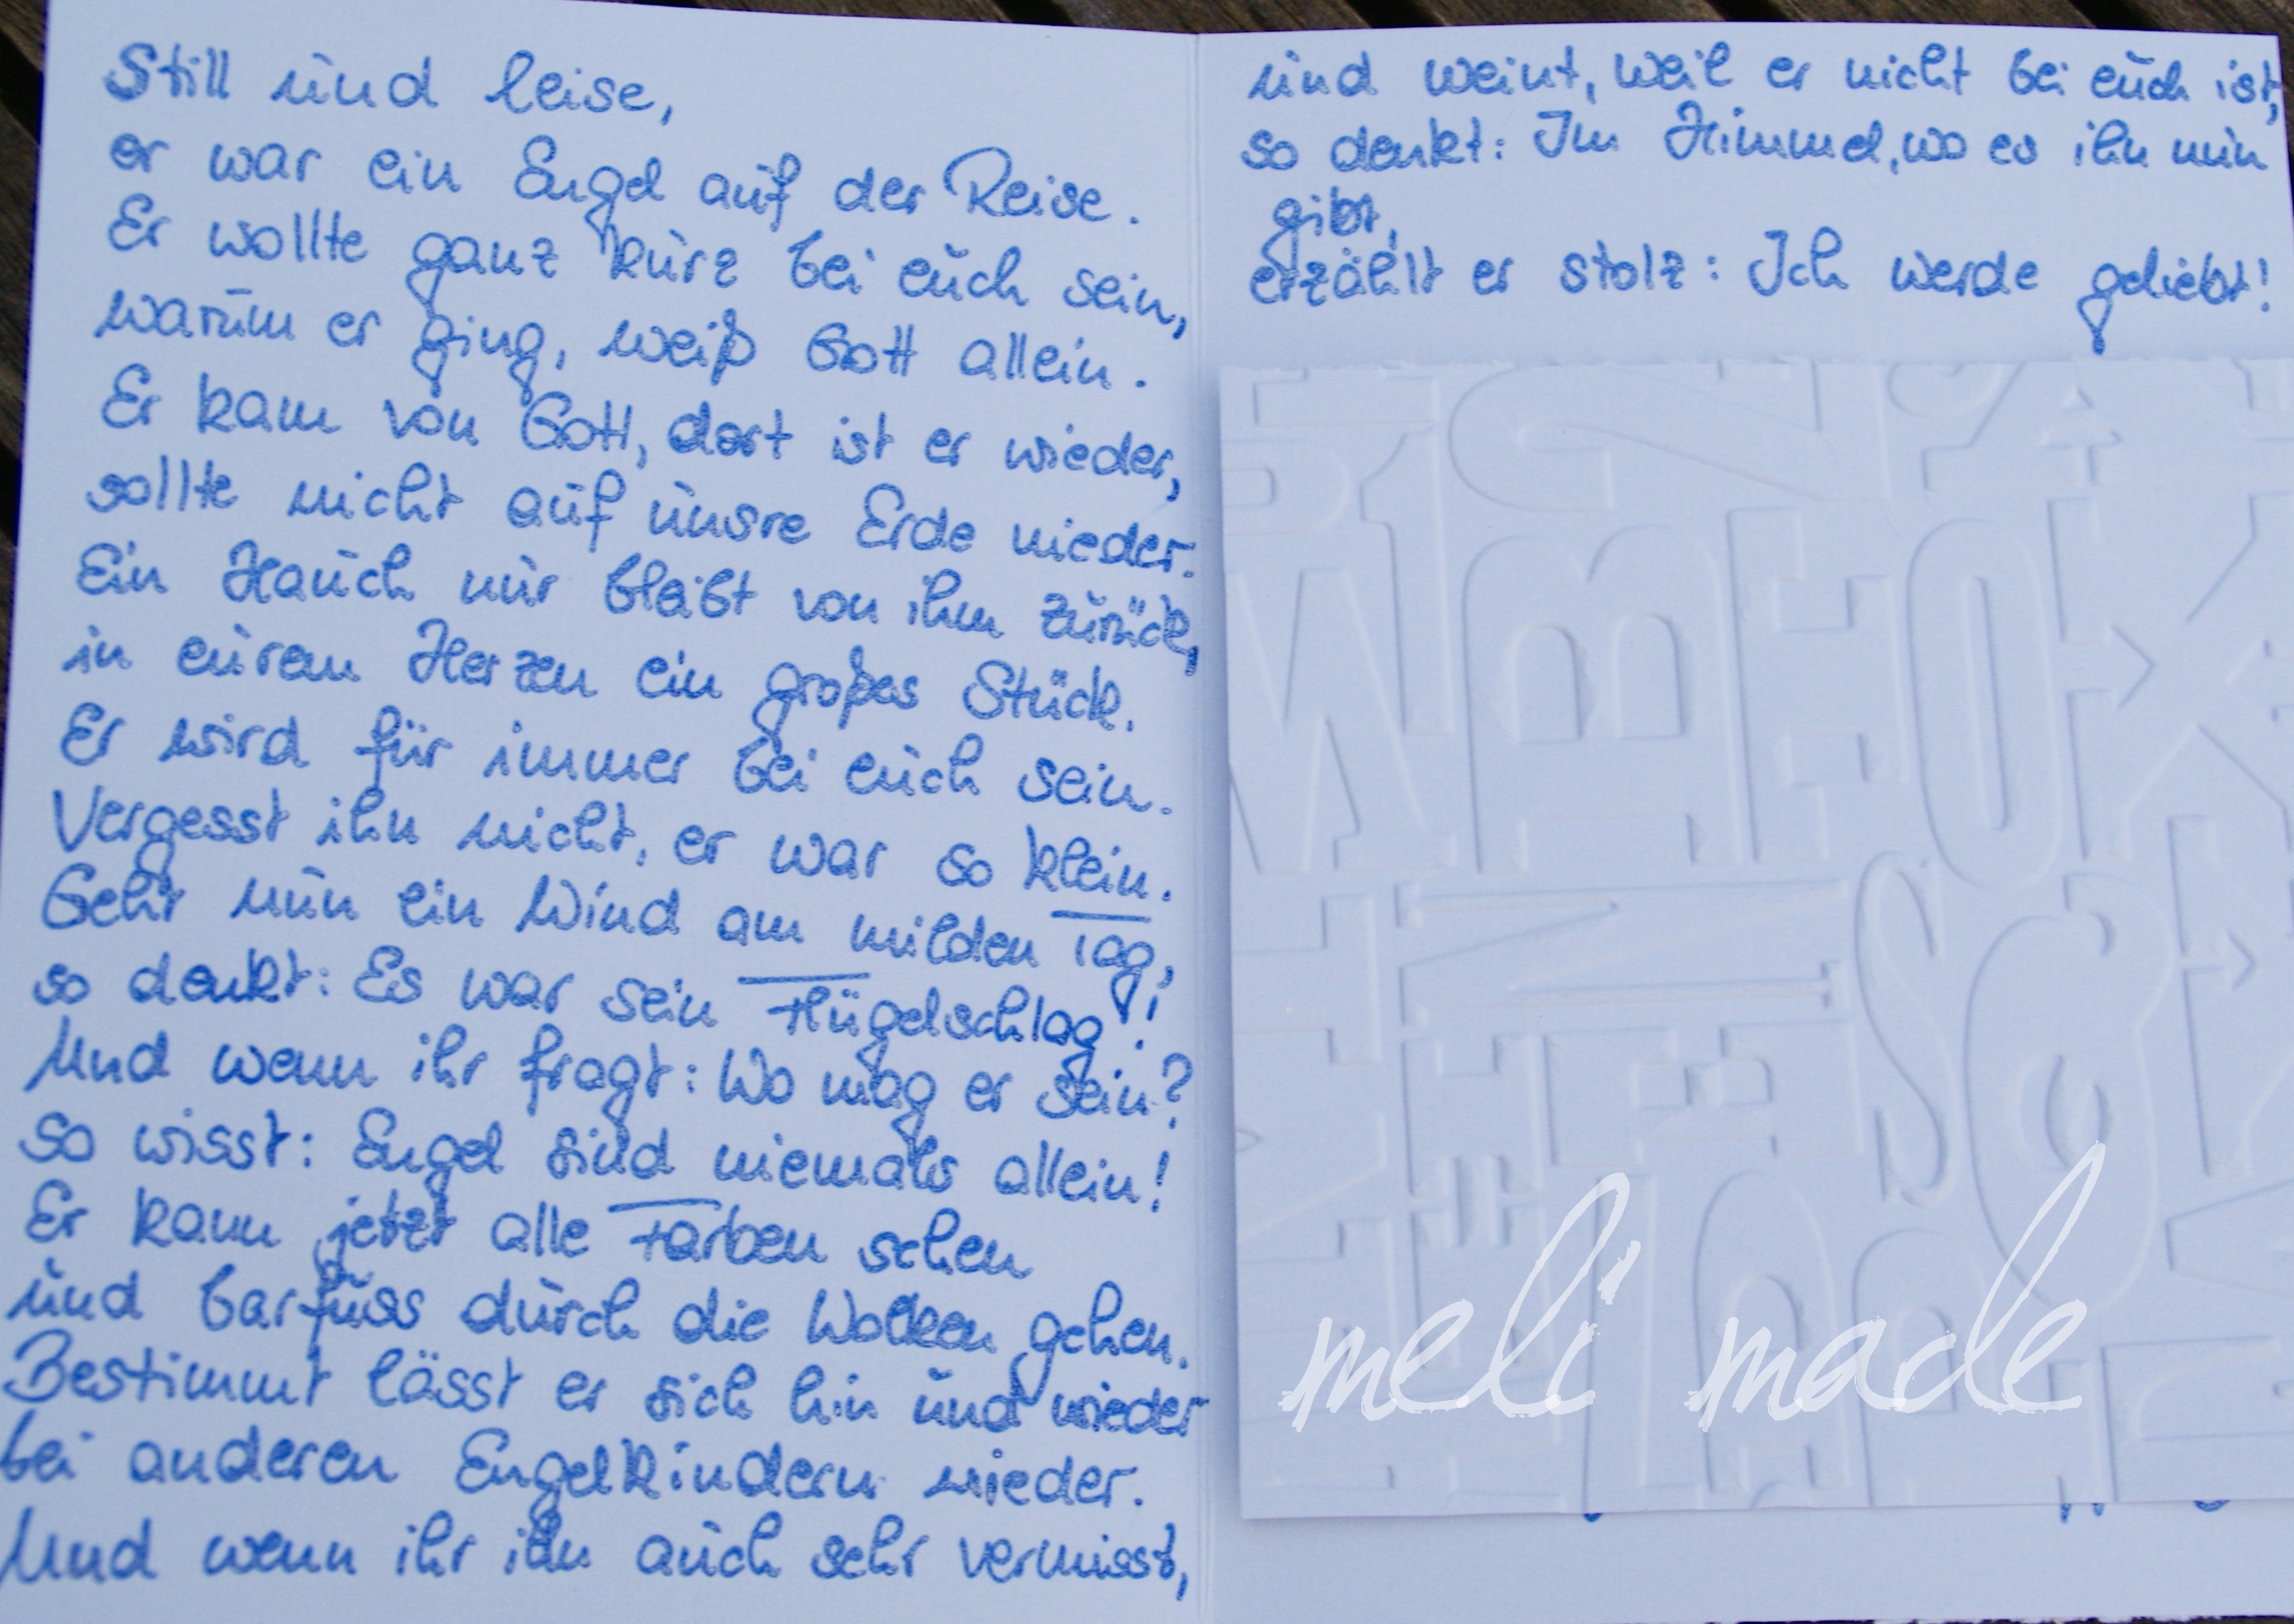 Still und leise,
er war ein Engel auf der Reise.
Er wollte ganz kurz bei euch sein,
warum er ging, weiß Gott allein.
Er kam von Gott, dort ist er wieder,
sollte nicht auf unsre Erde nieder.
Ein Hauch nur bleibt von ihm zurück,
in eurem Herzen ein großes Stück.
Er wird für immer bei euch sein.
Vergesst ihn nicht, er war so klein.
Geht nun ein Wind am milden Tag,
so denkt: Es war sein Flügelschlag!
Und wenn ihr fragt: Wo mag er sein?
so wisst: Engel sind niemals allein!
Er kann jetzt alle Farben sehen
und barfuss durch die Wolken gehen.
Bestimmt lässt er sich hin und wieder
bei anderen Engelkindern nieder.
Und wenn ihr ihn auch sehr vermisst,
und weint, weil er nicht bei euch ist,
so denkt: Im Himmel, wo es ihn nun
gibt,
erzählt er stolz: Ich werde geliebt!
meli made